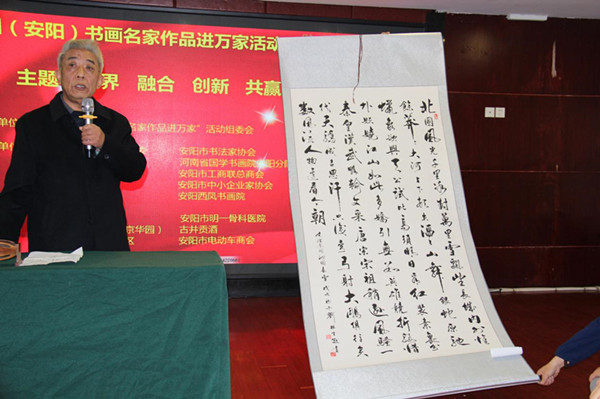 （安阳）书画名家作品进万家活动
主题 界 融合 创新 共赢
名家作品进万家”活动组委会
单位
安阳市书法家协会
河南省国学书画院 阳分
安阳市工商联总商会
安阳市中小企业家协会
安阳西风书画院
安阳市明一骨科医院
京华园） 古井贡酒
区 安阳市电动车商会
北国风光千里冰封万里雪飘望长城内外惟
馀莽莽大河上下顿失滔滔山舞银蛇原驰
蜡象欲与天公试比高须晴日看红装素裹分
外妖娆江山如此多娇引无数英雄竞折腰惜
秦皇汉武略输文采唐宗宋祖稍逊风骚一
代天骄成吉思汗只识弯弓射大雕俱往矣
数风流人物还看今朝